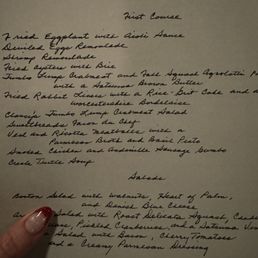 First Course
Fried Eggplant with Aioli Sauce
Deviled Eggs Remoulade
Shrimp Remoulade
Fried Oysters with Brie
Jumbo Lump Crabmeat and Fall Squash
with a Satsuma Brown Butter
Fried Rabbit with a Rice-Grit Cake and a
Worcestershire Bordelaise
Jumbo Lump Crabmeat Salad
Sweetbreads du Chef
Veal and Ricotta Meatballs with a
Parmesan Broth and Basil Pesto
Smoked Chicken and Andouille Sausage Gumbo
Creole Turtle Soup
Salads
Boston Salad with Walnuts, Heart of Palm,
and Danish Blue Cheese
Salad with Roast Delicata Squash,
Pickled and a Satsuma
Salad with Bacon, Cherry Tomatoes
and a Creamy Parmesan Dressing